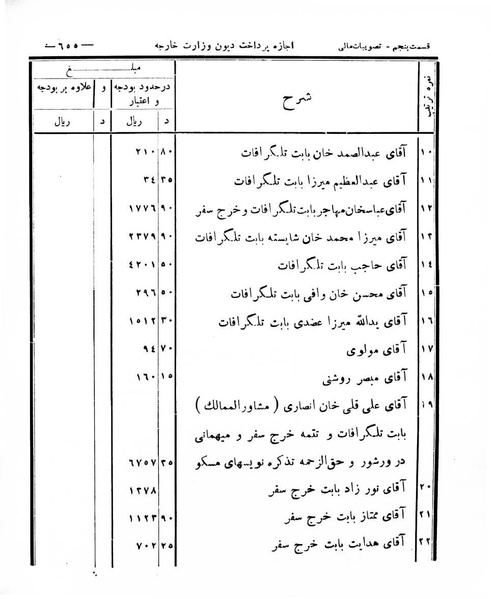 قسمت پنجم - تصویبات مالی
اجازه پرداخت دیون وزارت خارجه
— ٦٥٥ —
نمره ترتیب
شرح
مبلغ
در حدود بودجه و اعتبار
و
علاوه بر بودجه
د ریال
د ریال
١٠ آقای عبدالصمد خان بابت تلگرافات ٨٠ ٢١٠
١١ آقای عبدالعظیم میرزا بابت تلگرافات ٣٥ ٣٤
١٢ آقای عباسخان مهاجر بابت تلگرافات و خرج سفر ٩٠ ١٧٧٦
١٣ آقای میرزا محمد خان شایسته بابت تلگرافات ٩٠ ٢٣٧٩
١٤ آقای حاجب بابت تلگرافات ٥٠ ٤٢٠١
١٥ آقای محسن خان وافی بابت تلگرافات ٥٠ ٢٩٦
١٦ آقای یدالله میرزا عضدی بابت تلگرافات ٣٠ ١٥١٢
١٧ آقای مولوی ٧٠ ٩٤
١٨ آقای مبصر روشنی ١٥ ١٦٠
١٩ آقای علی قلی خان انصاری ( مشاور الممالک )
بابت تلگرافات و تتمه خرج سفر و میهمانی
در ورشور و حق الزحمه تذکره نویسهای مسکو ٣٥ ٦٧٥٧
٢٠ آقای نور زاد بابت خرج سفر ١٢٧٨
٢١ آقای ممتاز بابت خرج سفر ٩٠ ١١٢٣
٢٢ آقای هدایت بابت خرج سفر ٢٥ ٧٠٢